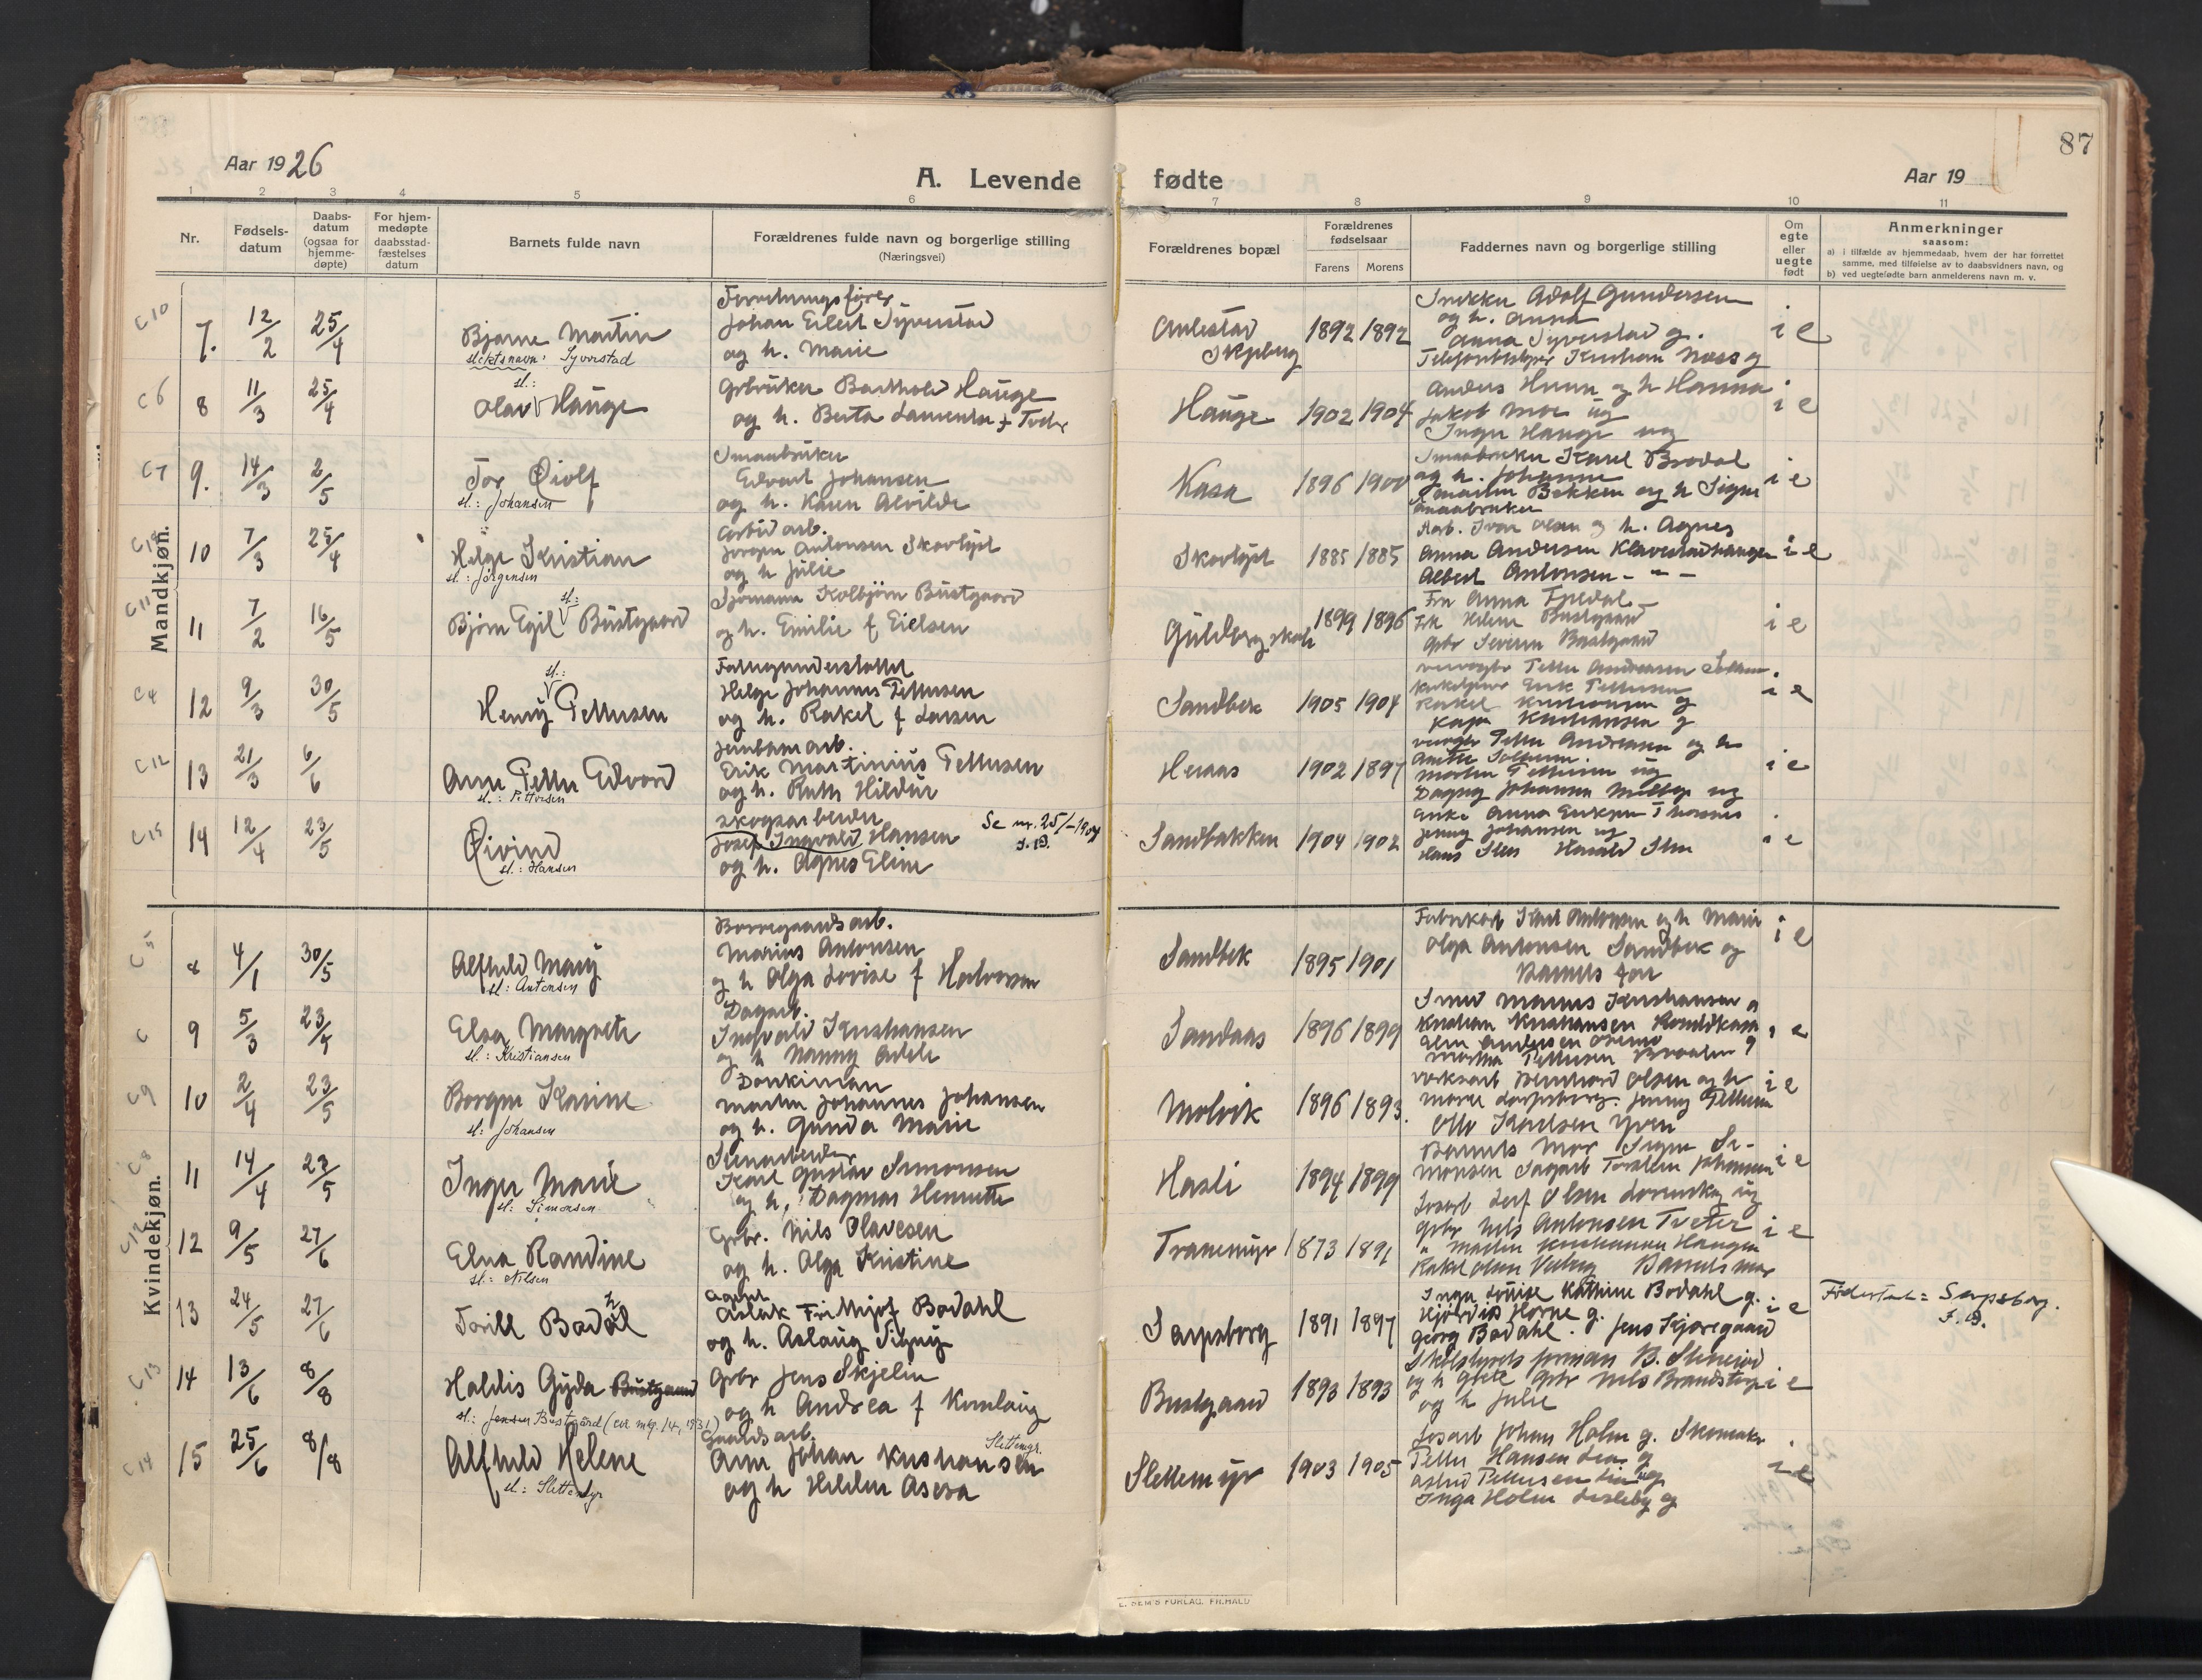 87
Aar 1926
A. Levende fødte
Aar 19
1 2 3 4 5 6 7 8 9 10 11
Nr.
Fødsels-
datum
Daabs-
datum
(ogsaa for
hjemme-
døpte)
For hjem-
medøpte
daabsstad-
fæstelses
datum
Barnets fulde navn
Forældrenes fulde navn og borgerlige stilling
(Næringsvei)
Forældrenes bopæl
Forældrenes
fødselsaar
Farens Morens
Faddernes navn og borgerlige stilling
Om
egte
eller
uegte
født
Anmerkninger
saasom:
a) i tilfælde av hjemmedaab, hvem der har forrettet
samme, med tilføielse av to daabsvidners navn, og
b) ved uegtefødte barn anmelderens navn m. v.
Mandkjøn.
C10
7. 12/2 25/4
Bjarne Martin
slektsnavn: Syverstad
Forretningsfører
Johan Eilert Syverstad
og h. Marie
Skjeberg
1892 1892
Snekker Adolf Gundersen
og h. Anna
Anna Syverstad g.
Kristian Næss g
i e
C6
8 11/3 25/4
sl:
Olav Hauge
Grbruker Barthold Hauge
og h. Berta Laurentse f Tveter
Hauge
1902 1904
Anders Hunn og h Hanna
Jakob Moe ug
Inger Hauge ug
i e
C7
9. 14/3 2/5
Tor Øiolf
sl: Johansen
Smaabruker
Edvart Johansen
og h. Karen Alvilde
Kasa
1896 1900
Smaabruker Karel Brodal
og h. Johanne
Martin Bekken og h Signe
Smaabruker
i e
10 7/3 25/4
Helge Kristian
sl: Jørgensen
arbeid arb.
Jørgen Antonsen Skovlyst
og h Julie
Skovlyst
1885 1885
Arb. Ivar Olsen og h. Agnes
Anna Andersen Klavestadhaugen
Albert Antonsen - " -
i e
C11
11 7/2 16/5
sl:
Bjørn Egil Bustgaard
Sjømann Kolbjørn Bustgaard
og h. Emilie f Eielsen
Guldbergskoh
1899 1896
Fru Anna
Frk Helene Bustgaard
Grbr Severin Bustgaard
i e
C4
12 9/3 30/5
sl:
Henry Pettersen
Fattigunderstøttet
Helge Johannes Pettersen
og h. Rakel f Larsen
Sandbek
1905 1904
Petter Andreassen
Erik Pettersen
Rakel Kristiansen g
Kaja Kristiansen g
i e
C12
13 21/3 6/6
Arne Petter Edvard
sl: Pettersen
Jernbanearb.
Erik Martinius Pettersen
og h. Ruth Hildur
Heraas
1902 1897
Petter Andreassen og h
Martin Pettersen ug
Dagny Johansen ug
i e
C15
14 12/4 23/5
Øivind
sl: Hansen
skogsarbeider
Josef Ingvald Hansen
og h. Agnes Eline
Se nr. 25/-1904
S.B.
Sandbakken
1904 1902
Enke Anna Eriksen
Jenny Johansen ug
Hans Harald
i e
Kvindekjøn.
C5
8 4/1 30/5
Alfhild Mary
sl: Antonsen
Borregaardsarb.
Marius Antonsen
og h Olga Lovise f Halvorsen
Sandbek
1895 1901
Fabrikarb Karl Antonsen og h Marie
Olga Antonsen Sandbek og
Barnets far
i e
C
9 5/3 23/5
Elsa Margrete
sl: Kristiansen
Dagarb.
Ingvald Kristiansen
og h Nanny Adele
Sandaas
1896 1899
Smed Marius Kristiansen g
Kristian Kristiansen
Martha Pettersen
i e
C9
10 2/4 23/5
Borgny Karine
sl: Johansen
Donkiman
Martin Johannes Johansen
og h. Gunda Marie
Molvik
1896 1893.
Bernhard Olsen og h
Marie Jenny Pettersen
Otto Karlsen Yven
i e
C8
11 14/4 23/5
Inger Marie
sl: Simonsen
Stenarbeider
Karl Gustav Simonsen
og h. Dagmar Henriette
Hasli
1894 1899
Barnets mor Signe Si-
monsen Torstein Johansen
Leif Olsen ug
i e
12 9/5 27/6
Elna Randine
sl: Nilsen
Grbr. Nils Olavesen
og h. Olga Kristine
Tranemyr
1873 1891
Grbr Nils Antonsen Tveter
" Martin Kristiansen Haugen
Rakel Olsen Barnets mor
i e
13 24/5 27/6
Torill Bodahl
Agent
Aslak Frithjof Bodahl
og h. Aslaug Signy
Sarpsborg
1891 1897
Inga Louise Kathrine Bodahl g.
Hjørdis Horne g.
Georg Bodahl. Jens Kjøregaard
i e
Fødested = Sarpsborg.
S.B.
C13
14 13/6 8/8
Haldis Gyda Bustgaard
sl: Jensen Bustgård (cir. mrg. 14, 1931)
Grbr Jens Skjelin
og h Andrea f Kumlaug
Bustgaard
1893 1893
Skolestyrets forman B.
og h Grete Grbr Nils Brandstorp
og h Julie
i e
C14
15 25/6 8/8
Alfhild Helene
sl: Slettemyr
Gaardsarb.
Slettemyr.
Arne Johan Kristiansen
og h Hildur Asora
Slettemyr
1903 1905
Løsarb Johan Holm g. Skomaker
Petter Hansen Lea g
Astrid Pettersen Lia ug
Inga Holm Lisleby g
i e
E. SEM'S FORLAG, FR.HALD